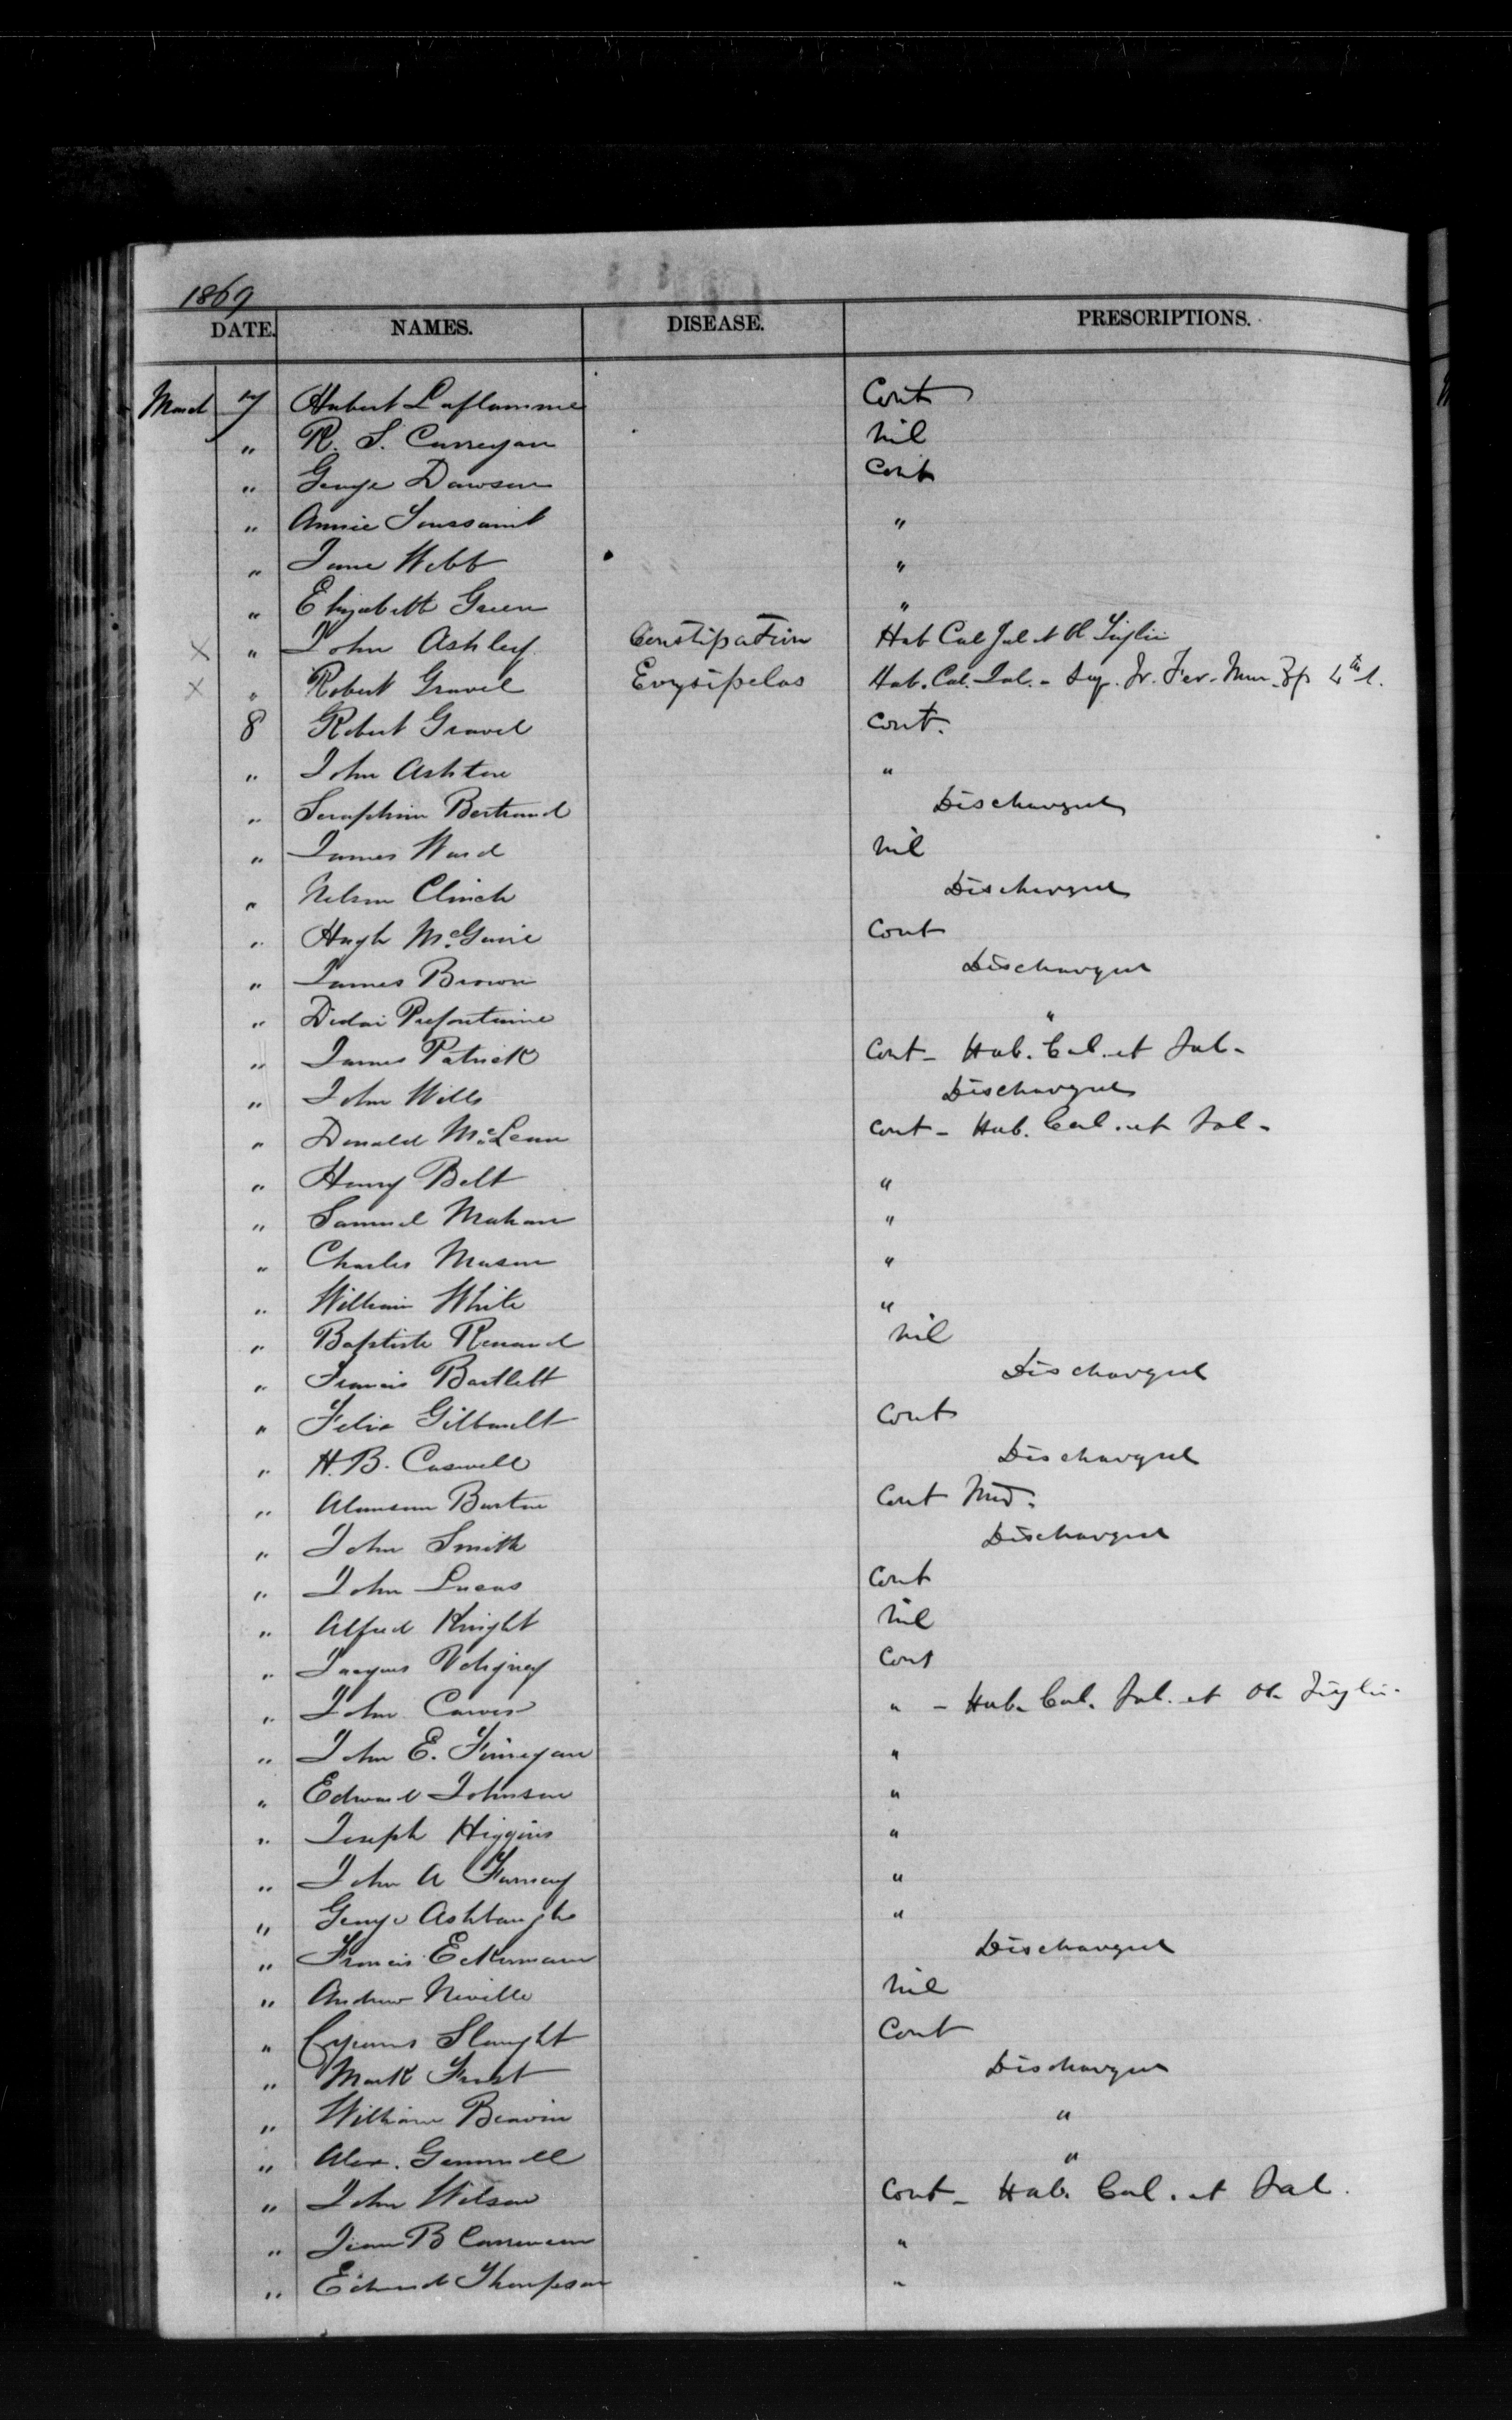 1869
DATE. NAMES. DISEASE. PRESCRIPTIONS.
March 7 Hubert Laflamme Cont
" R. S. Curregan nil
" George Dawson Cont
" Annie Toussaint "
" Jane Webb "
" Elizabeth Green "
X " John Ashley Constipation Hab Cal Jal et Ol Tiglii
X " Robert Gravel Erysipelas Hab. Cal. Jal. - Fer. Mur. 4th
8 Robert Gravel Cont.
" John Ashton "
" Seraphim Bertrand Discharged
" James Ward nil
" Nelson Clinch Discharged
" Hugh McGuire Cont
" James Brown Discharged
" Didai Prefontaine "
" James Patrick Cont - Hab. Cal. et Jal -
" John Wills Discharged
" Donald McLean Cont - Hab. Cal. et Jal -
" Henry Belt "
" Samuel Mahan "
" Charles Mason "
" William White "
" Baptiste Renaud nil
" Francis Bartlett Discharged
" Felix Gilbault Cont
" H. B. Caswell Discharged
" Alanson Burton Cont Med.
" John Smith Discharged
" John Lucas Cont
" Alfred Knight nil
" Jacques Cont
" John Carver " - Hab. Cal. Jal. et Ol. Tiglii -
" John E. Finnegan "
" Edward Johnson "
" Joseph Higgins "
" John A Furney "
" George Ashbaugh "
" Francis Eckermann Discharged
" Andrew Neville nil
" Cyrenus Slaught Cont
" Mark Frost Discharged
" William Beavin "
" Alex. Gemmell "
" John Wilson Cont - Hab. Cal. et Jal.
" Jean B "
" Edward Thompson "